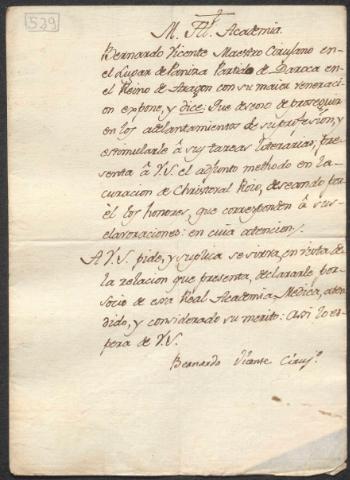 529
M. Ill. Academia.
Bernardo Vicente Maestro Cirujano en
el Lugar de Paniza Partido de Daroca en
el Reino de Aragon con su maior veneracion
expone, y dice: Que deseoso de proseguir
en los adelantamientos de su profesion, y
estimularle â sus tareas literarias, pre
senta â V.S. el adjunto methodo en la
curacion de Christoval Roio, deseando por
êl los honores, que corresponden â sus
elavoraciones: en cuia atencion/.
A V.S. pide, y suplica se sirva, en vista de
la relacion que presenta, declararle por
Socio de esa Real Academia Medica, aten
dido, y considerado su merito: Asi lo es
pera de V.S.
Bernardo Vicente Ciruj.º